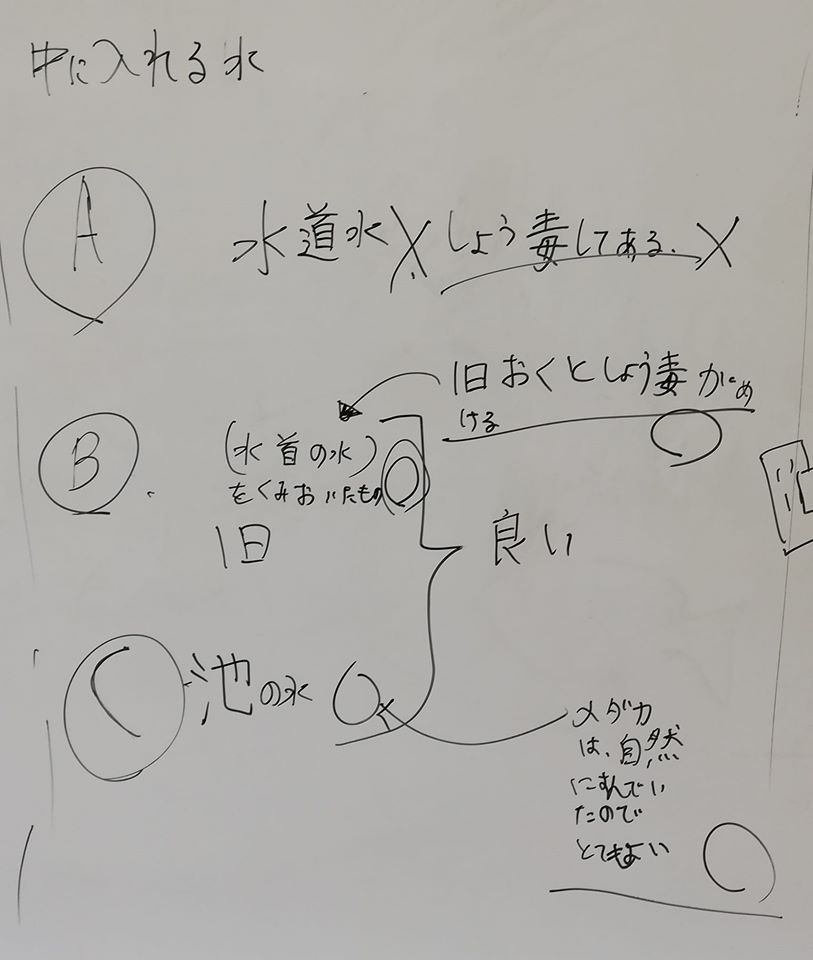 中に入れる水
A 水道水 X しょう毒してある. X
1日おくとしょう毒がぬ
ける
B. (水首の水)
をくみおいたもの
1日
良い
C 池の水
メダカ
は、自然
にすんでい
たので
とてもよい